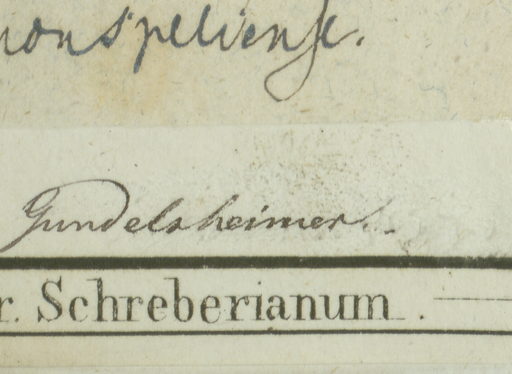 monspeliense.
Gundelsheimer.
r. Schreberianum.